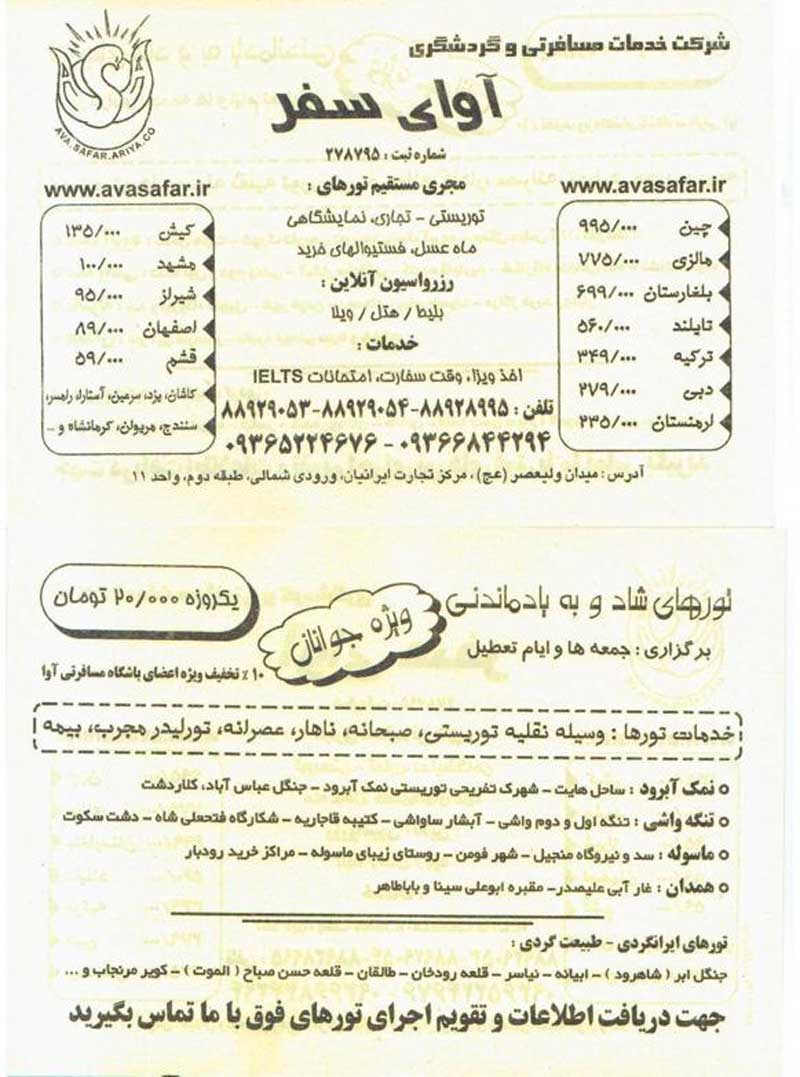 AVA.SAFAR.ARIYA.CO
شرکت خدمات مسافرتی و گردشگری
آوای سفر
شماره ثبت : ۲۷۸۷۹۵
www.avasafar.ir
مجری مستقیم تورهای :
www.avasafar.ir
چین ۹۹۵/۰۰۰
مالزی ۷۷۵/۰۰۰
بلغارستان ۶۹۹/۰۰۰
تایلند ۵۶۰/۰۰۰
ترکیه ۳۴۹/۰۰۰
دبی ۲۷۹/۰۰۰
ارمنستان ۲۳۵/۰۰۰
توریستی - تجاری، نمایشگاهی
ماه عسل، فستیوالهای خرید
رزرواسیون آنلاین :
بلیط / هتل / ویلا
خدمات :
اخذ ویزا، وقت سفارت، امتحانات IELTS
تلفن : ۸۸۹۲۸۹۹۵-۸۸۹۲۹۰۵۴-۸۸۹۲۹۰۵۳
۰۹۳۶۶۸۴۴۲۹۴ - ۰۹۳۶۵۲۲۴۶۷۶
کیش ۱۳۵/۰۰۰
مشهد ۱۰۰/۰۰۰
شیراز ۹۵/۰۰۰
اصفهان ۸۹/۰۰۰
قشم ۵۹/۰۰۰
کاشان، یزد، سرعین، آستارا، رامسر،
سنندج، مریوان، کرمانشاه و ...
آدرس : میدان ولیعصر (عج) ، مرکز تجارت ایرانیان، ورودی شمالی، طبقه دوم، واحد ۱۱
تورهای شاد و به یادماندنی
ویژه جوانان
یکروزه ۲۰/۰۰۰ تومان
برگزاری : جمعه ها و ایام تعطیل
۱۰٪ تخفیف ویژه اعضای باشگاه مسافرتی آوا
خدمات تورها : وسیله نقلیه توریستی، صبحانه، ناهار، عصرانه، تورلیدر مجرب، بیمه
نمک آبرود : ساحل هایت - شهرک تفریحی توریستی نمک آبرود - جنگل عباس آباد، کلاردشت
تنگه واشی : تنگه اول و دوم واشی - آبشار ساواشی - کتیبه قاجاریه - شکارگاه فتحعلی شاه - دشت سکوت
ماسوله : سد و نیروگاه منجیل - شهر فومن - روستای زیبای ماسوله - مراکز خرید رودبار
همدان : غار آبی علیصدر- مقبره ابوعلی سینا و باباطاهر
تورهای ایرانگردی - طبیعت گردی :
جنگل ابر ( شاهرود ) - ابیانه - نیاسر - قلعه رودخان - طالقان - قلعه حسن صباح ( الموت ) - کویر مرنجاب و ...
جهت دریافت اطلاعات و تقویم اجرای تورهای فوق با ما تماس بگیرید